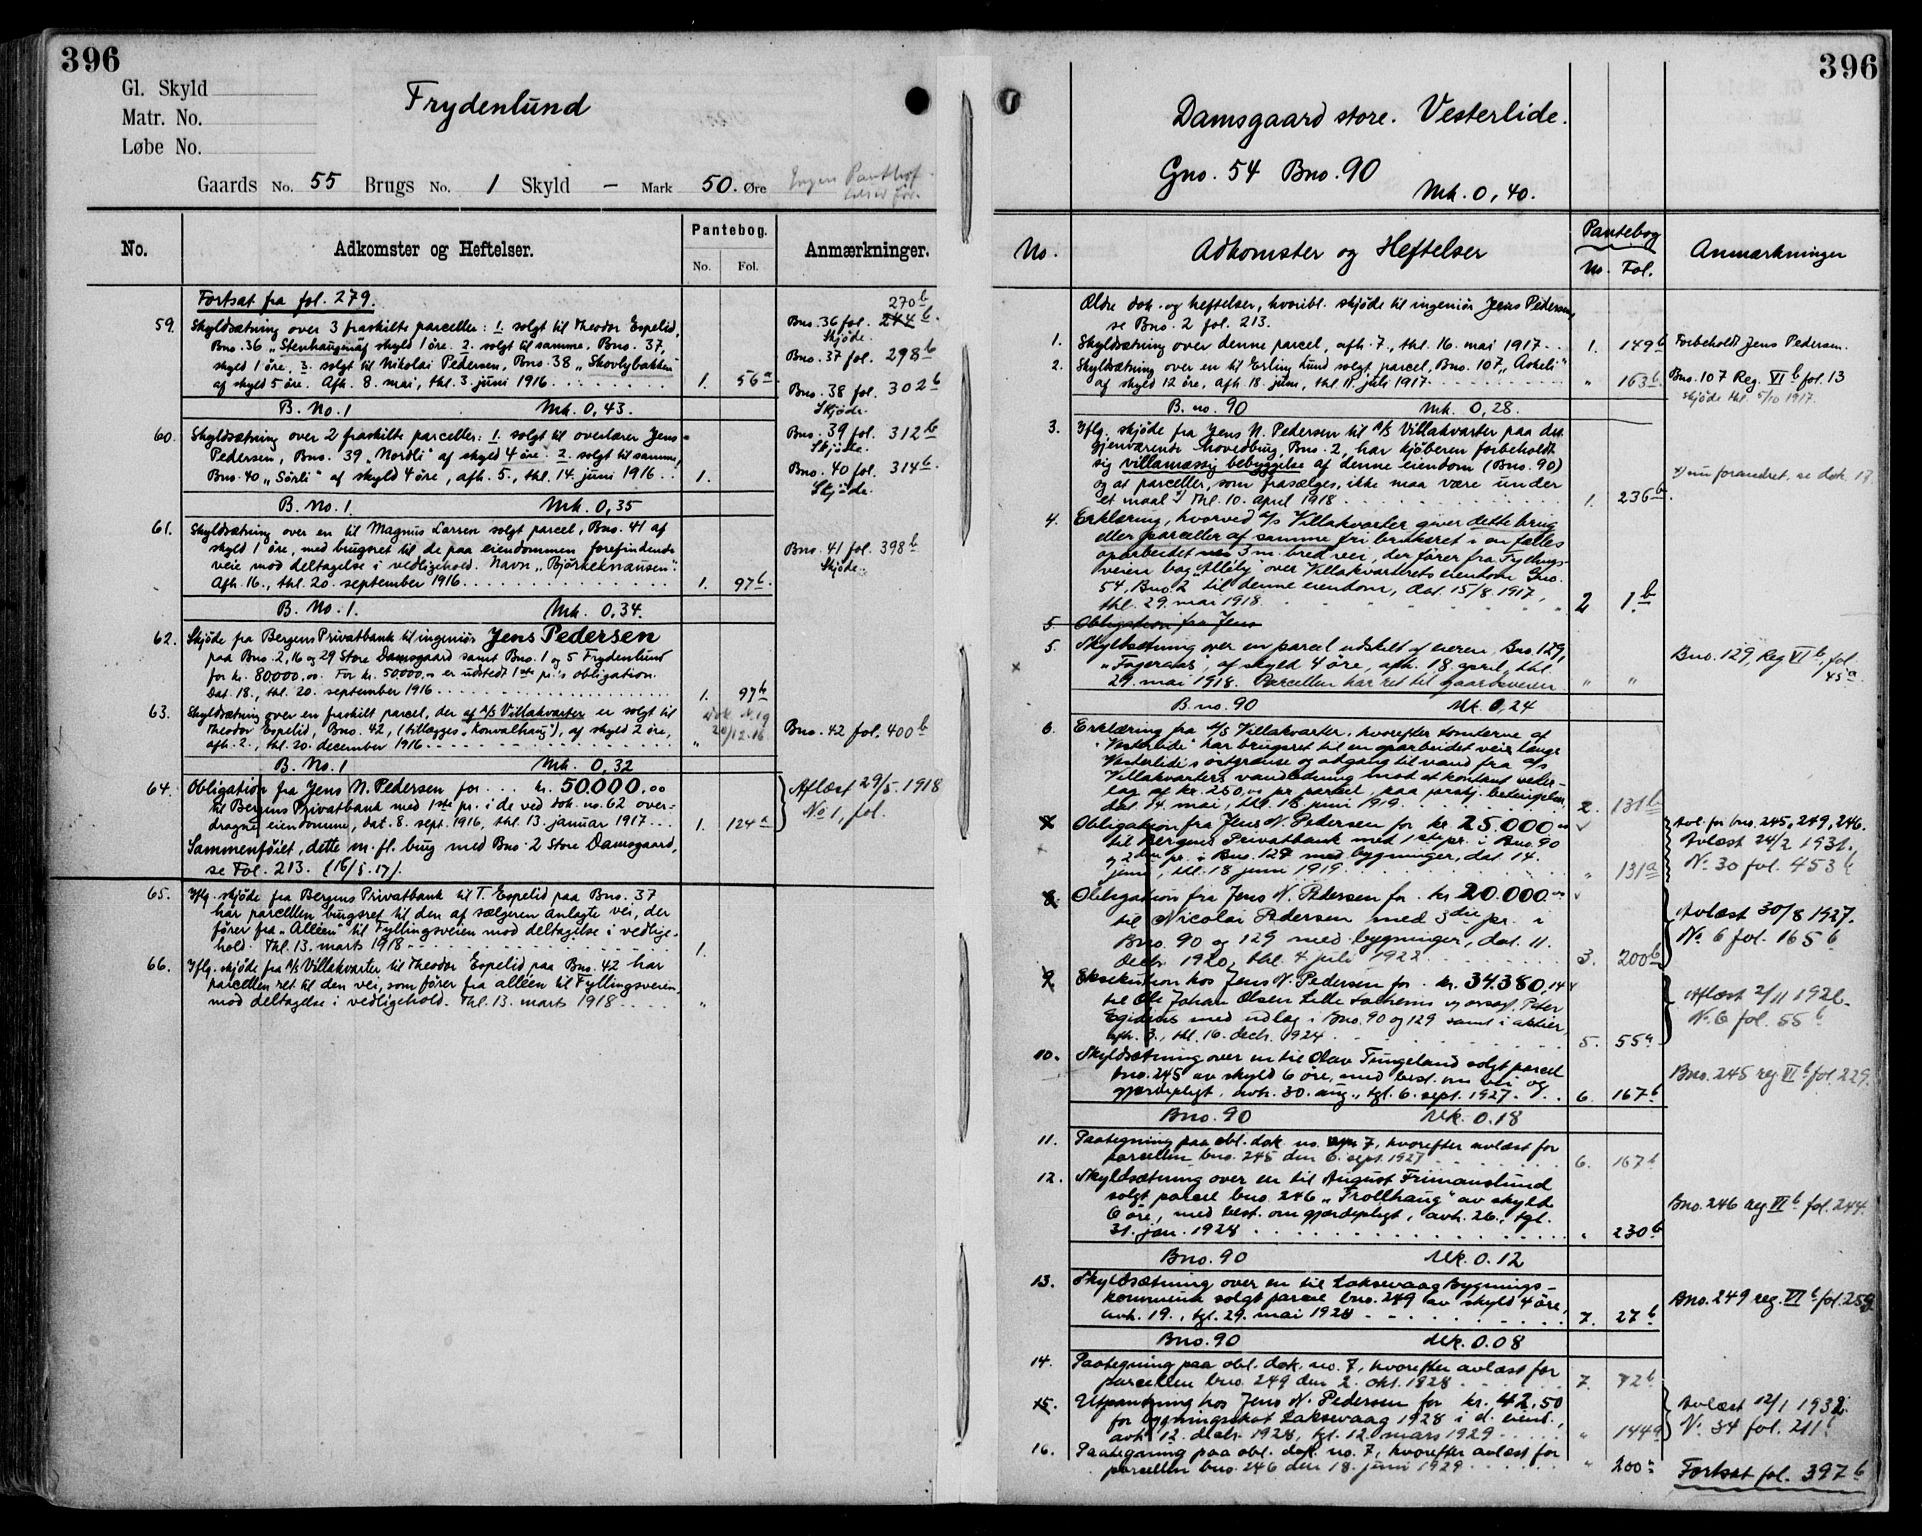 396
Gl. Skyld
Matr. No.
Løbe No.
Frydenlund
Gaards No. 55 Brugs No. 1 Skyld – Mark 50. Øre
No.
Adkomster og Heftelser.
Pantebog.
No. Fol.
Anmærkninger.
Fortsat fra fol. 279.
59. Skyldsætning over 3 fraskilte parceller: 1. solgt til Theodor Espelid,
Bno. 36 „Stenhaugen" af skyld 1 øre. 2. solgt til samme, Bno. 37,
skyld 1 øre, 3. solgt til Nikolai Pedersen, Bno. 38 „Skovlybakken"
af skyld 5 øre. Afh. 8. mai, thl. 3. juni 1916 1. 56a
270b
Bno. 36 fol. 244b.
Skjøde.
Bno. 37 fol. 298b
Bno. 38 fol. 302b
Skjøde.
B. No. 1 Mk. 0,43.
60. Skyldsætning over 2 fraskilte parceller: 1. solgt til overlærer Jens
Pedersen, Bno. 39 „Nordli" af skyld 4 øre. 2. solgt til samme,
Bno. 40 „Sörli" af skyld 4 øre, afh. 5., thl. 14. juni 1916 . . 1.
Bno. 39 fol. 312b
Skjöde.
Bno. 40 fol. 314b.
Skjøde.
B. No. 1. Mk. 0,35
61. Skyldsætning over en til Magnus Larsen solgt parcel, Bno. 41 af
skyld 1 øre, med brugsret til de paa eiendommen forefindende
veie mod deltagelse i vedligehold. Navn „Björkeknausen".
Afh. 16., thl. 20. september 1916 1. 97b.
Bno. 41 fol. 398b
Skjøde.
B. No. 1. Mk. 0,34.
62. Skjøde fra Bergens Privatbank til ingeniør Jens Pedersen
paa Bno. 2, 16 og 29 Store Damsgaard samt Bno. 1 og 5 Frydenlund
for kr. 80000,00. For kr. 50000,00 er udstedt 1ste pr.'s obligation.
Dat. 18., thl. 20. september 1916 1. 97b
63. Skyldsætning over en fraskilt parcel, der af A/S Villakvarter er solgt til
Theodor Espelid, Bno. 42, (tillægges „Konvalhaug"), af skyld 2 øre,
afh. 2., thl. 20. december 1916 "
20/12.16
Bno. 42 fol. 400b
B. No. 1 Mk. 0,32
64. Obligation fra Jens N. Pedersen for . . . kr. 50000,00
til Bergens Privatbank med 1ste pr. i de ved dok. no. 62 over-
dragne eiendomme, dat. 8. sept. 1916, thl. 13. januar 1917 . . . 1. 124a
Aflæst 29/5 - 1918
No 1, fol.
Sammenføiet, dette m. fl. brug med Bno. 2 Store Damsgaard,
se Fol. 213. (16/5. 17).
65. Iflg. skjøde fra Bergens Privatbank til T. Espelid paa Bno. 37
har parcellen brugsret til den af sælgeren anlagte vei, der
fører fra „Alléen" til Fyllingsveien mod deltagelse i vedlige-
hold. Thl. 13. marts 1918 1.
66. Iflg. skjøde fra A/S Villakvarter til Theodor Espelid paa Bno. 42 har
parcellen ret til den vei, som fører fra alléen til Fyllingsveien,
mod deltagelse i vedligehold. Thl. 13. marts 1918 "
396
Damsgaard store. Vesterlide.
Gno. 54 Bno. 90
Mk. 0,40.
No.
Adkomster og Heftelser
Pantebog
No. Fol.
Anmærkninger
Ældre dok. og heftelser, hvoribl. skjøde til ingeniør Jens Pedersen,
se Bno. 2 fol. 213.
1. Skyldsætning over denne parcel, afh. 7., thl. 16. mai 1917 . . . 1. 149b
Forbeholdt Jens Pedersen.
2. Skyldsætning over en til Erling Lund solgt parcel, Bno. 107, „Askeli"
af skyld 12 øre, afh. 18. juni, thl. 11. juli 1917 " 163b.
Bno. 107 Reg. VIb fol. 13
skjøde thl. 5/10 1917.
B. no. 90 Mk. 0,28.
3. Iflg. skjøde fra Jens N. Pedersen til A/S Villakvarter paa det
gjenværende hovedbrug, Bno. 2, har kjøberen forbeholdt
sig villamæssig bebyggelse af denne eiendom (Bno. 90)
og at parceller, som frasælges, ikke maa være under
et maal x) Thl. 10. april 1918 1. 236b.
x) nu forandret, se dok. 17
4. Erklæring, hvorved A/S Villakvarter giver dette brug
eller parceller af samme fri bruksret i en fælles
oparbeidet 3 m. bred vei, der fører fra Fyllings-
veien bag „Alleby" over Villakvarterets eiendom Gno.
54, Bno. 2 til denne eiendom, dat. 15/8. 1917,
thl. 29. mai 1918. 2 1.b
5. Obligation fra Jens
5. Skyldsætning over en parcel udskilt af eieren, Bno. 129,
„Fageraas", af skyld 4 øre, afh. 18. april, thl.
29. mai 1918. Parcellen har ret til gaardsveien " "
Bno. 129, Reg VIb, fol.
45a.
B no. 90 Mk. 0,24
6. Erklæring fra A/S Villakvarter, hvorefter tomterne af
„Vesterlide" har brugsret til en oparbeidet vei langs
Vesterlide's østgrænse og adgang til vand fra A/S
Villakvarters vandledning mod et kontant veder-
lag af kr. 250,00 pr parcel, paa forskj. betingelser,
dat. 14. mai, thl. 18. juni 1919. 2. 131b
7. Obligation fra Jens N. Pedersen for kr. 25.000 00
til Bergens Privatbank med 1ste pr. i Bno. 90
og 2den pr. i Bno. 129 med bygninger, dat. 14.
juni, thl. 18 juni 1919 " 131a
Avl. for bno. 245, 249, 246.
Avlæst 24/2 1931.
No. 30 fol. 453b
8. Obligation fra Jens N. Pedersen for kr 20.000 00
til Nicolai Pedersen med 3die pr. i
Bno. 90 og 129 med bygninger, dat. 11.
decbr. 1920, thl. 4 juli 1922 3. 200b
Avlæst 30/8 1927.
No. 6 fol. 165b
9. Eksekution hos Jens N. Pedersen for . kr. 34.380,14
til Ole Johan Olsen Lille og Peter
Egidius med udlæg i Bno. 90 og 129 samt i aktier,
afh. 3., thl. 16. decbr. 1924 5. 55a
Aflæst 2/11 1926.
No. 6 fol. 55b
10. Skyldsætning over en til Olav Tungeland solgt parcel
bno. 245 av skyld 6 øre, med best. om vei og
gjerdepligt, avh. 30. aug., tgl. 6. sept. 1927 6. 167b
Bno. 245 reg VIb fol. 229.
Bno. 90 Mk. 0.18
11. Paategning paa obl. dok. no. 7, hvorefter avlæst for
parcellen bno. 245 den 6. sept. 1927 6. 167b
12. Skyldsætning over en til August Frimanslund
solgt parcel bno. 246 „Trollhaug" av skyld
6 øre, med best. om gjerdepligt, avh. 26., tgl.
31. jan. 1928 " 230b
Bno. 246 reg VIb fol. 244.
Bno. 90 Mk. 0.12
13. Skyldsætning over en til Laksevaag bygnings-
kommune solgt parcel bno. 249 av skyld 4 øre,
avh. 19., tgl. 29. mai 1928 7. 27b
Bno. 249 reg. VIb fol. 259
Bno. 90 Mk. 0.08
14. Paategning paa obl. dok. no. 7, hvorefter avlæst for
parcellen bno. 249 den 2. okt. 1928 7. 72b
15. Utpantning hos Jens N. Pedersen for kr. 42,50
for bygningsskat Laksevaag 1928 i d. eiend.,
avh. 12. decbr. 1928, tgl. 12. mars 1929 " 144a
Avlæst 12/1 1932.
No. 34 fol. 211b
16. Paategning paa obl. dok. no. 7, hvorefter avlæst for
parcellen bno. 246 den 18. juni 1929 " 200a
Fortsat fol. 397b